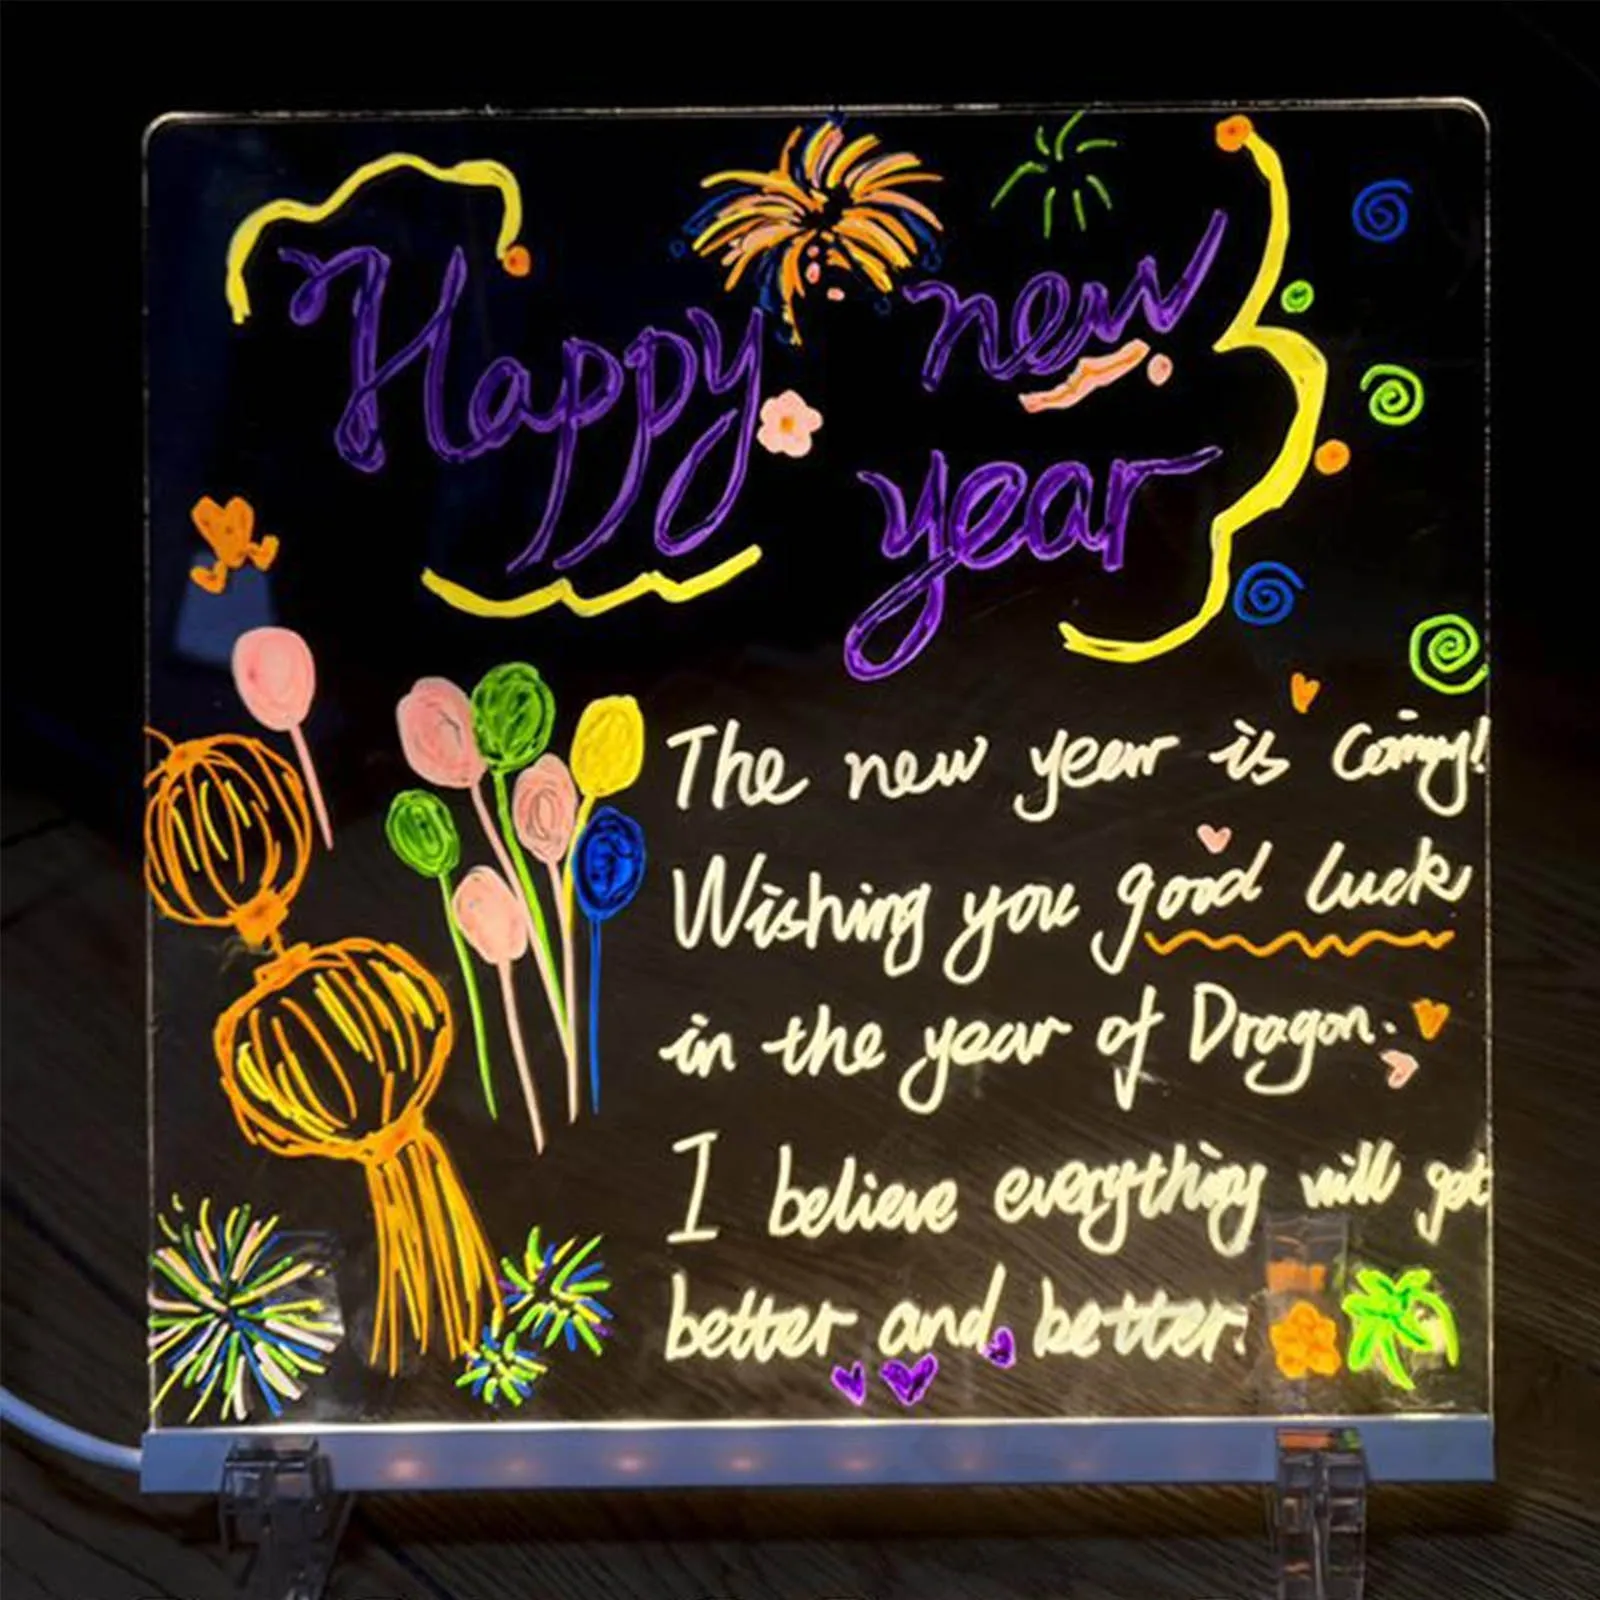 Happy new
year
The new year is Coming!
Wishing you good luck
in the year of Dragon.
I believe everything will get
better and better.